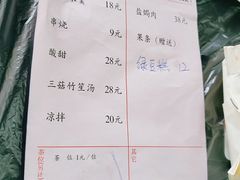 18元
串烧
9元
酸甜
28元
三菇竹笙汤
28元
凉拌
20元
茶位1元/位
盐焗肉
38元
果条（赠送）
绿豆糕 12
其它